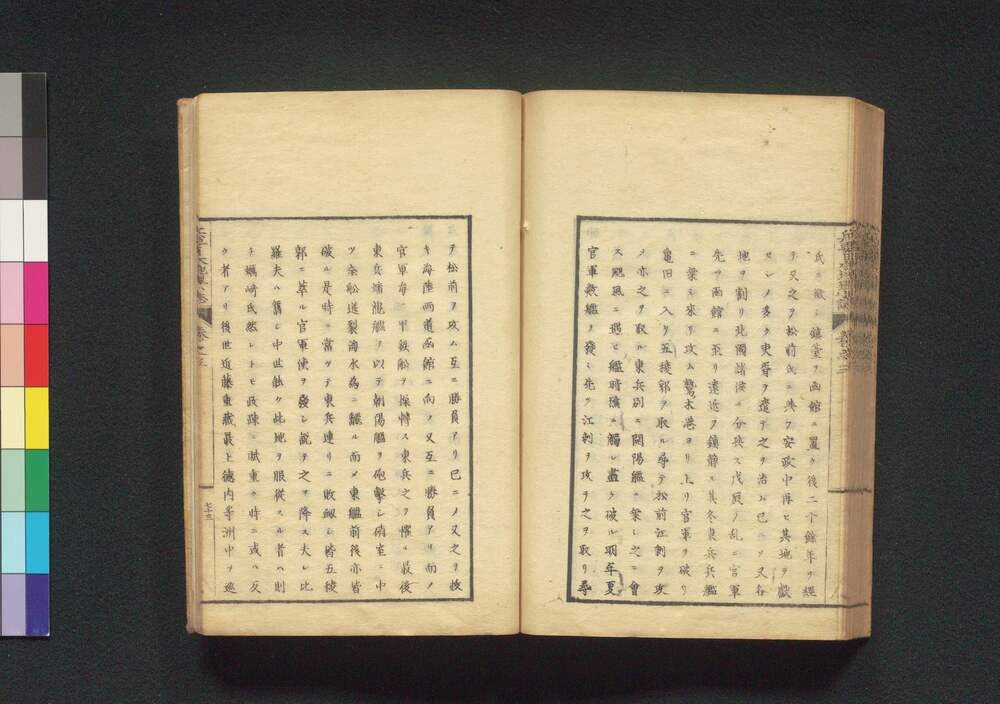 氏ヲ徵シ鎮臺ヲ函館ニ置ク後二十餘年ヲ經
テ又之ヲ松前氏ニ與フ安政中再ヒ其地ヲ獻
セシメ多ク吏胥ヲ遣テ之ヲ治ム已ニメ又各
地ヲ割リ北國諸侯ニ分狹ス戊辰ノ乱ニ官軍
先ツ函館ニ至リ遠近ヲ鎮靜ス其冬東兵兵艦
ニ乗シ來リ攻ム鷲木港ヨリ上リ官軍ヲ破リ
亀田ニ入リ五稜郭ヲ取ル尋テ松前江刺ヲ攻
メ亦之ヲ取ル東兵別ニ開陽艦ニ乗シ之ニ會
ス颶風ニ遇ヒ艦暗礁ニ觸レ盡ク破ル明年夏
官軍數艦ヲ發シ先ツ江刺ヲ攻テ之ヲ取リ尋
テ松前ヲ攻ム互ニ勝負アリ已ニメ又之ヲ拔
キ海陸両道函館ニ向フ又互ニ勝負アリ而メ
官軍毎ニ甲鉄舩ヲ操轉ス東兵之ヲ懼ル最後
東兵蟠龍艦ヲ以テ朝陽艦ヲ砲擊シ硝室ニ中
ツ全舩迸裂海水為ニ飜ル而メ東艦前後亦皆
破ル是時ニ當ツテ東兵連リニ敗衂シ皆五稜
郭ニ萃ル官軍使ヲ發シ說テ之ヲ降ス夫レ比
羅夫ハ舊シ中世能ク此地ヲ服從スル者ハ則
ト蠣崎氏然レトモ政疎ニ賦重ク時ニ或ハ反
ク者アリ後世近藤重蔵最上德内等洲中ヲ巡